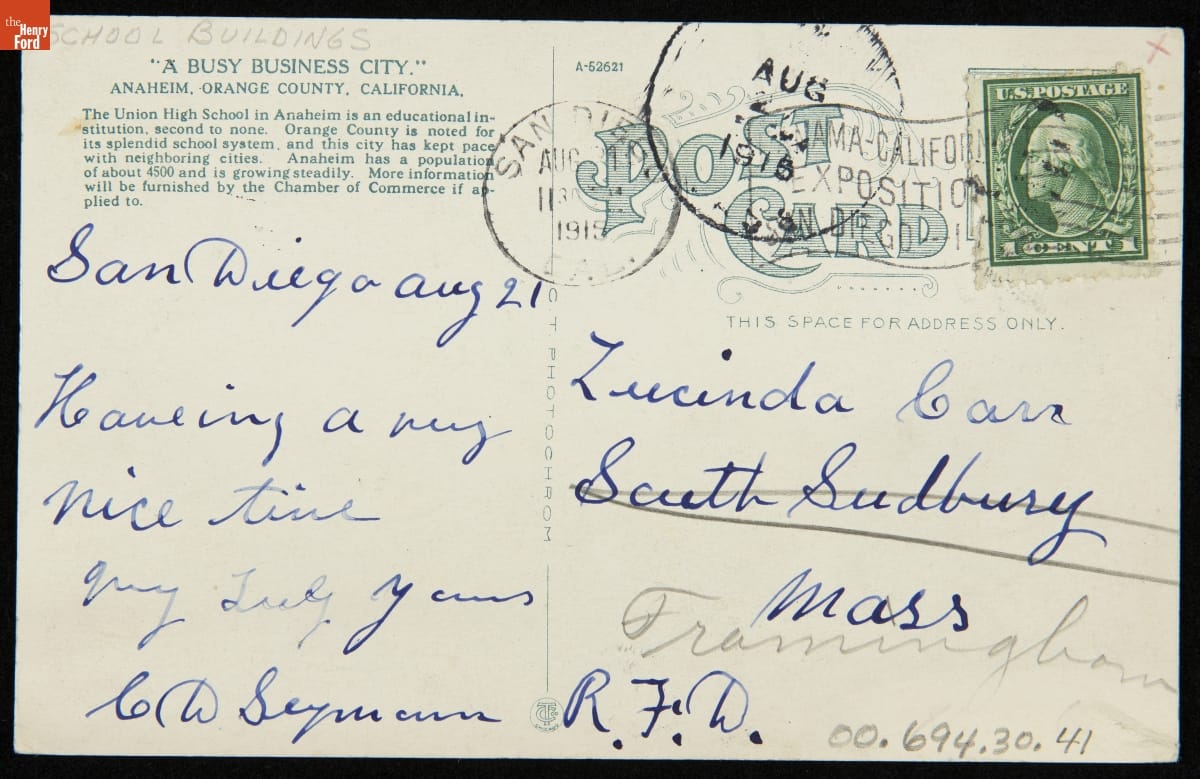 the
Henry
Ford
SCHOOL BUILDINGS
"A BUSY BUSINESS CITY."
ANAHEIM, ORANGE COUNTY, CALIFORNIA.
The Union High School in Anaheim is an educational in-
stitution, second to none. Orange County is noted for
its splendid school system, and this city has kept pace
with neighboring cities. Anaheim has a population
of about 4500 and is growing steadily. More information
will be furnished by the Chamber of Commerce if ap-
plied to.
San Diego Aug 21
Haveing a very
nice time
very Truly Yours
C D Seymour
A-52621
POST
CARD
SAN DIE
AUG
1915
CAL.
AUG
AMA-CALIFORN
EXPOSITION
SAN DIEGO
U.S. POSTAGE
1 CENT 1
THIS SPACE FOR ADDRESS ONLY.
C. T. PHOTOCHROM
Lucinda Carr
South Sudbury
Mass
Framingham
R.F.D.
00.694.30.41